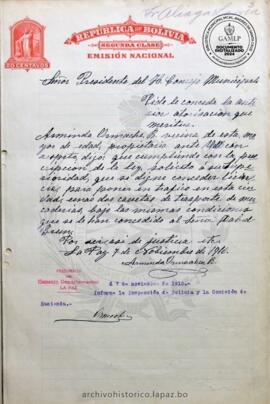 REPÚBLICA DE BOLIVIA
SEGUNDA CLASE
EMISIÓN NACIONAL
20 CENTAVOS
GAMLP
DOCUMENTO
DIGITALIZADO
2024
Señor Presidente del H. Concejo Municipal
Pide le conceda la
autorización que
Arminda Ormachea B. vecina de esta, ma-
yor de edad, propietaria ante Ud. con
respeto, dijo: que cumpliendo con la pres-
cripcion de la ley, solicito á su
autoridad, que se digne conceder licen-
cia para poner en tráfico en esta ciu-
dad, unas dos carretas de trasporte de mer-
caderias, bajo las mismas condiciones
que se le han concedido al Señor
Será de justicia, etc.
La Paz 7 de Nobiembre de 1910.
Arminda Ormachea B.
PRESIDENCIA
DEL
Concejo Departamental
LA PAZ
á 7 de noviembre de 1910.-
Informe la Inspección de Policía y la Comisión de
Hacienda.
archivohistorico.lapaz.bo